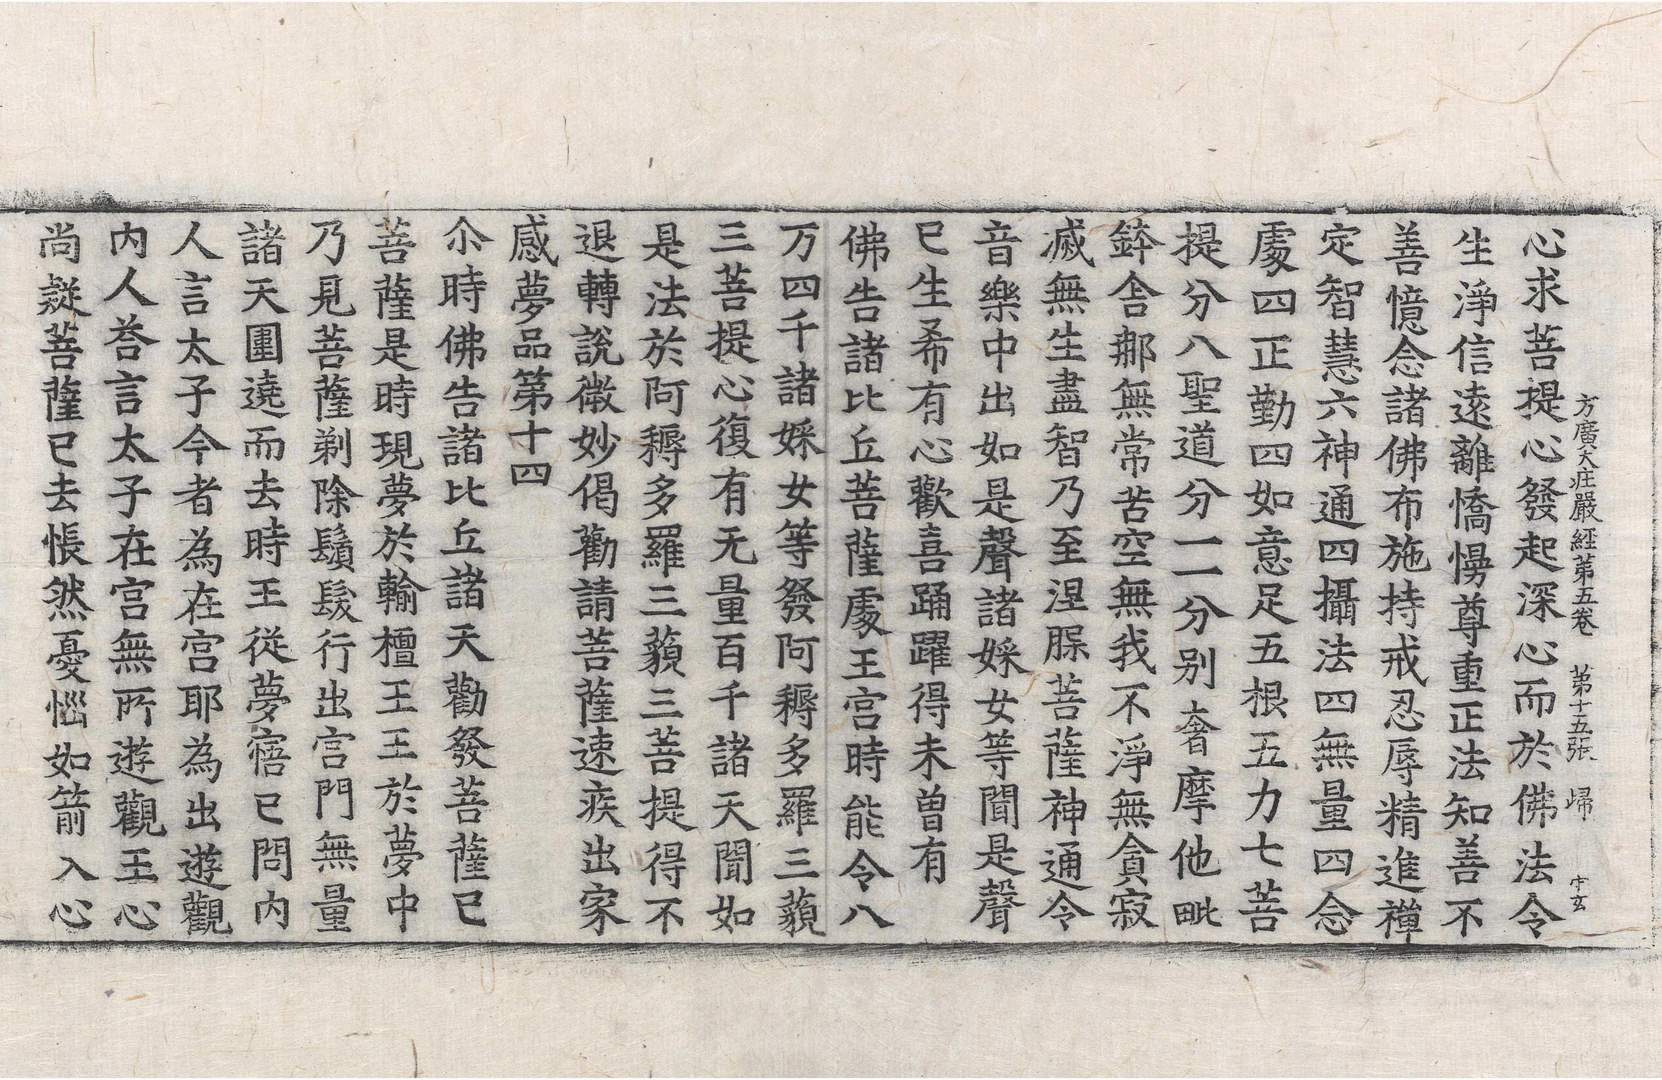 方廣大庄嚴経第五卷 第十五張 歸 守玄
心求菩提心發起深心而於佛法令
生淨信遠離憍慢尊重正法知善不
善憶念諸佛布施持戒忍辱精進禪
定智慧六神通四攝法四無量四念
處四正勤四如意足五根五力七菩
提分八聖道分一一分别奢摩他毗
鉢舍那無常苦空無我不淨無貪寂
滅無生盡智乃至涅槃菩薩神通令
音樂中出如是聲諸婇女等聞是聲
已生希有心歡喜踊躍得未曾有
佛告諸比丘菩薩處王宮時能令八
万四千諸婇女等發阿耨多羅三藐
三菩提心復有无量百千諸天聞如
是法於阿耨多羅三藐三菩提得不
退轉說微妙偈勸請菩薩速疾出家
感夢品第十四
尒時佛告諸比丘諸天勸發菩薩已
菩薩是時現夢於輸檀王王於夢中
乃見菩薩剃除鬚髮行出宮門無量
諸天圍遶而去時王從夢寤已問內
人言太子今者為在宮耶為出遊觀
內人荅言太子在宮無所遊觀王心
尚疑菩薩已去悵然憂惱如箭入心